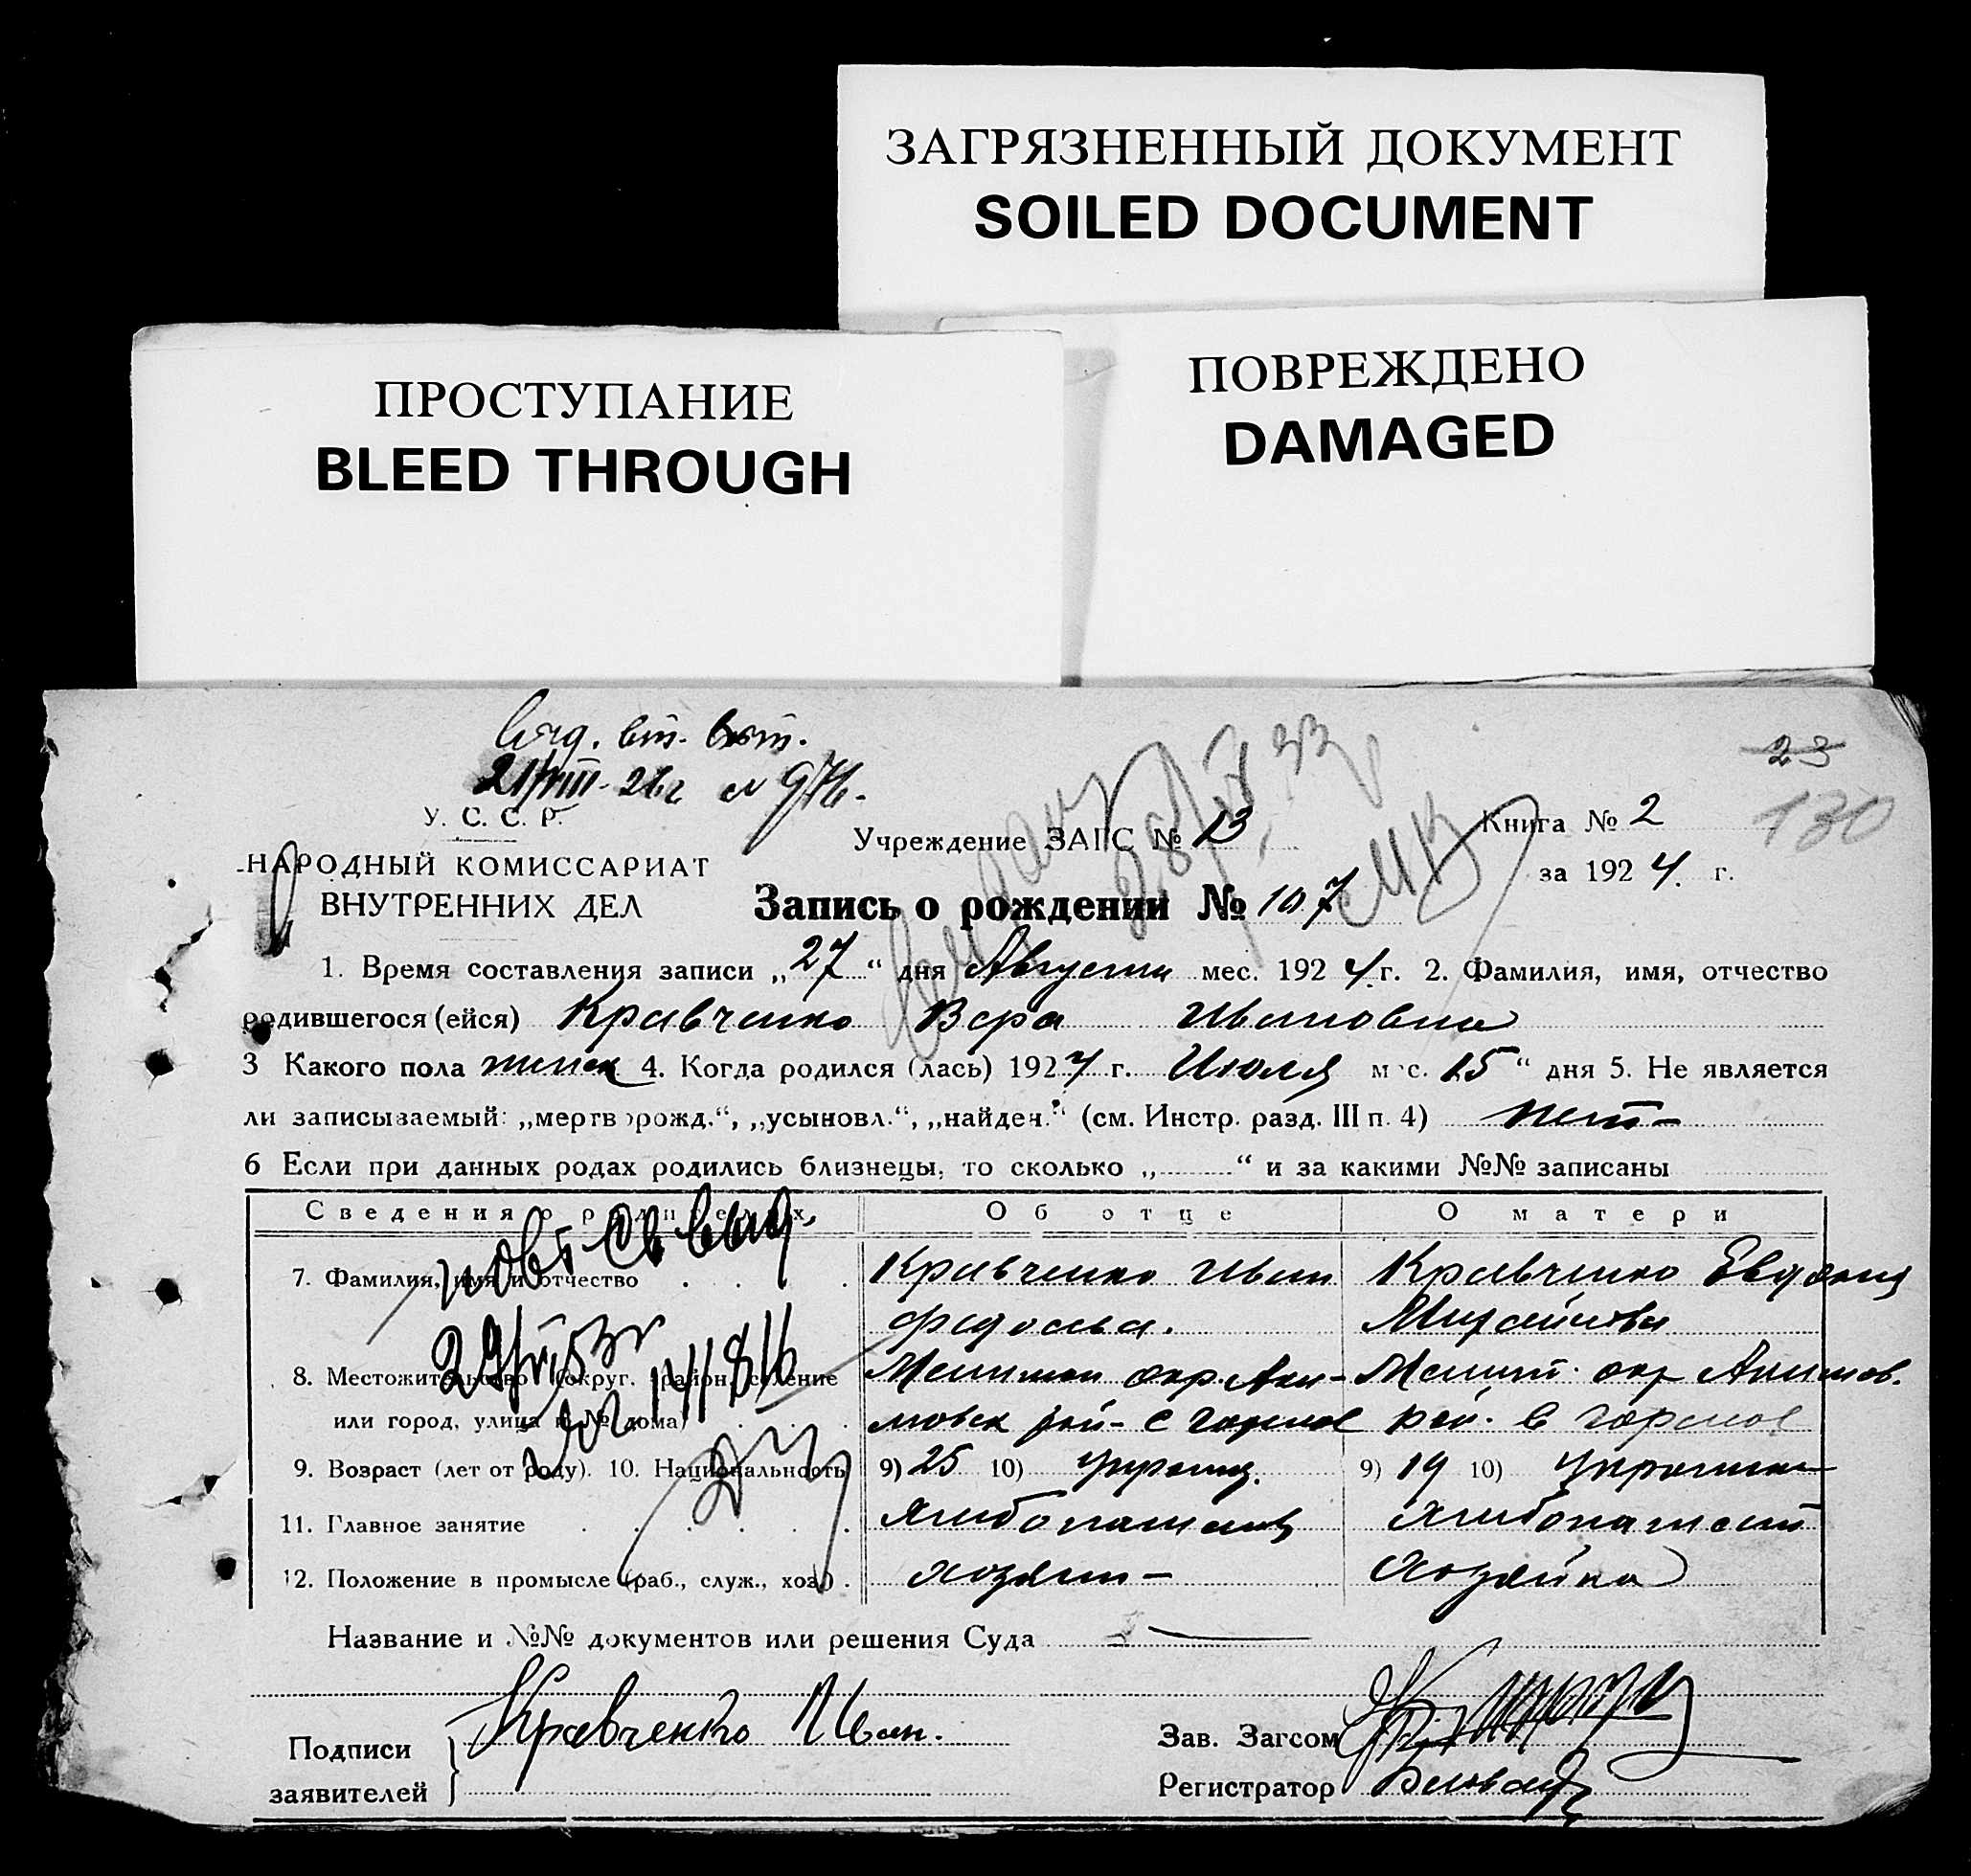 ЗАГРЯЗНЕННЫЙ ДОКУМЕНТ
SOILED DOCUMENT
ПРОСТУПАНИЕ
BLEED THROUGH
ПОВРЕЖДЕНО
DAMAGED
23
130
У. С. С. Р.
НАРОДНЫЙ КОМИССАРИАТ
ВНУТРЕННИХ ДЕЛ
Учреждение ЗАГС № 13
Книга № 2
за 1924. г.
Запись о рождении № 107
1. Время составления записи „27“ дня Августа мес. 1924 г. 2. Фамилия, имя, отчество
родившегося (ейся) Кравченко Вера Ивановна
3 Какого пола женск 4. Когда родился (лась) 1924 г. Июля мес. 15“ дня 5. Не является
ли записываемый: „мертворожд.“, „усыновл.“, „найден.“ (см. Инстр. разд. III п. 4) нет
6 Если при данных родах родились близнецы, то сколько „ “ и за какими №№ записаны
Сведения о родителях Об отце О матери
7. Фамилия, имя и отчество Кравченко Иван Кравченко Евдокия
8. Местожительство (округ, район, селение окр. Аки- окр Акимов.
или город, улица и № дома) мовск рай- с Горное рай. с Горное
9. Возраст (лет от роду). 10. Национальность 9) 25 10) Украинц. 9) 19 10) Украинка
11. Главное занятие Хлебопашец Хлебопашест
12. Положение в промысле (раб., служ., хоз.) хозяин- Хозяйка
Название и №№ документов или решения Суда
Подписи заявителей Кравченко Иван.
Зав. Загсом
Регистратор